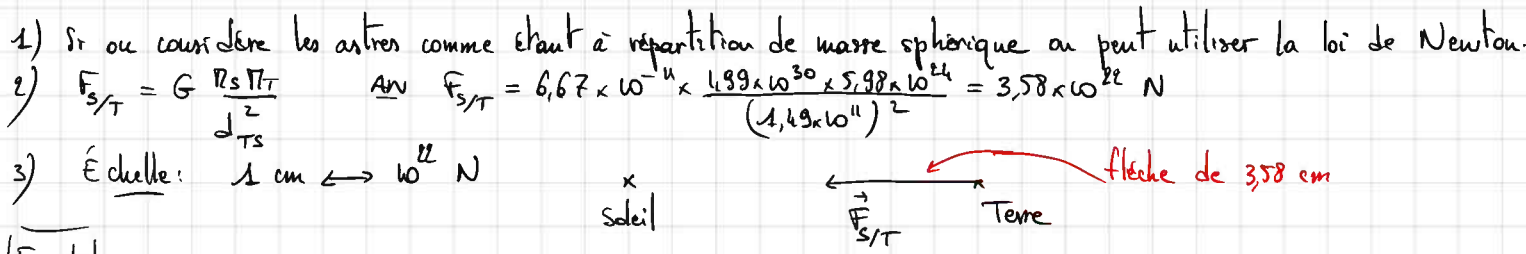 1) Si on considère les astres comme étant à répartition de masse sphérique on peut utiliser la loi de Newton.
2) F_S/T = G M_S M_T / d_TS² AN F_S/T = 6,67 × 10⁻¹¹ × 1,99×10³⁰ × 5,98×10²⁴ / (1,49×10¹¹)² = 3,58×10²² N
3) Échelle: 1 cm ↔ 10²² N
flèche de 3,58 cm
Soleil
F_S/T
Terre